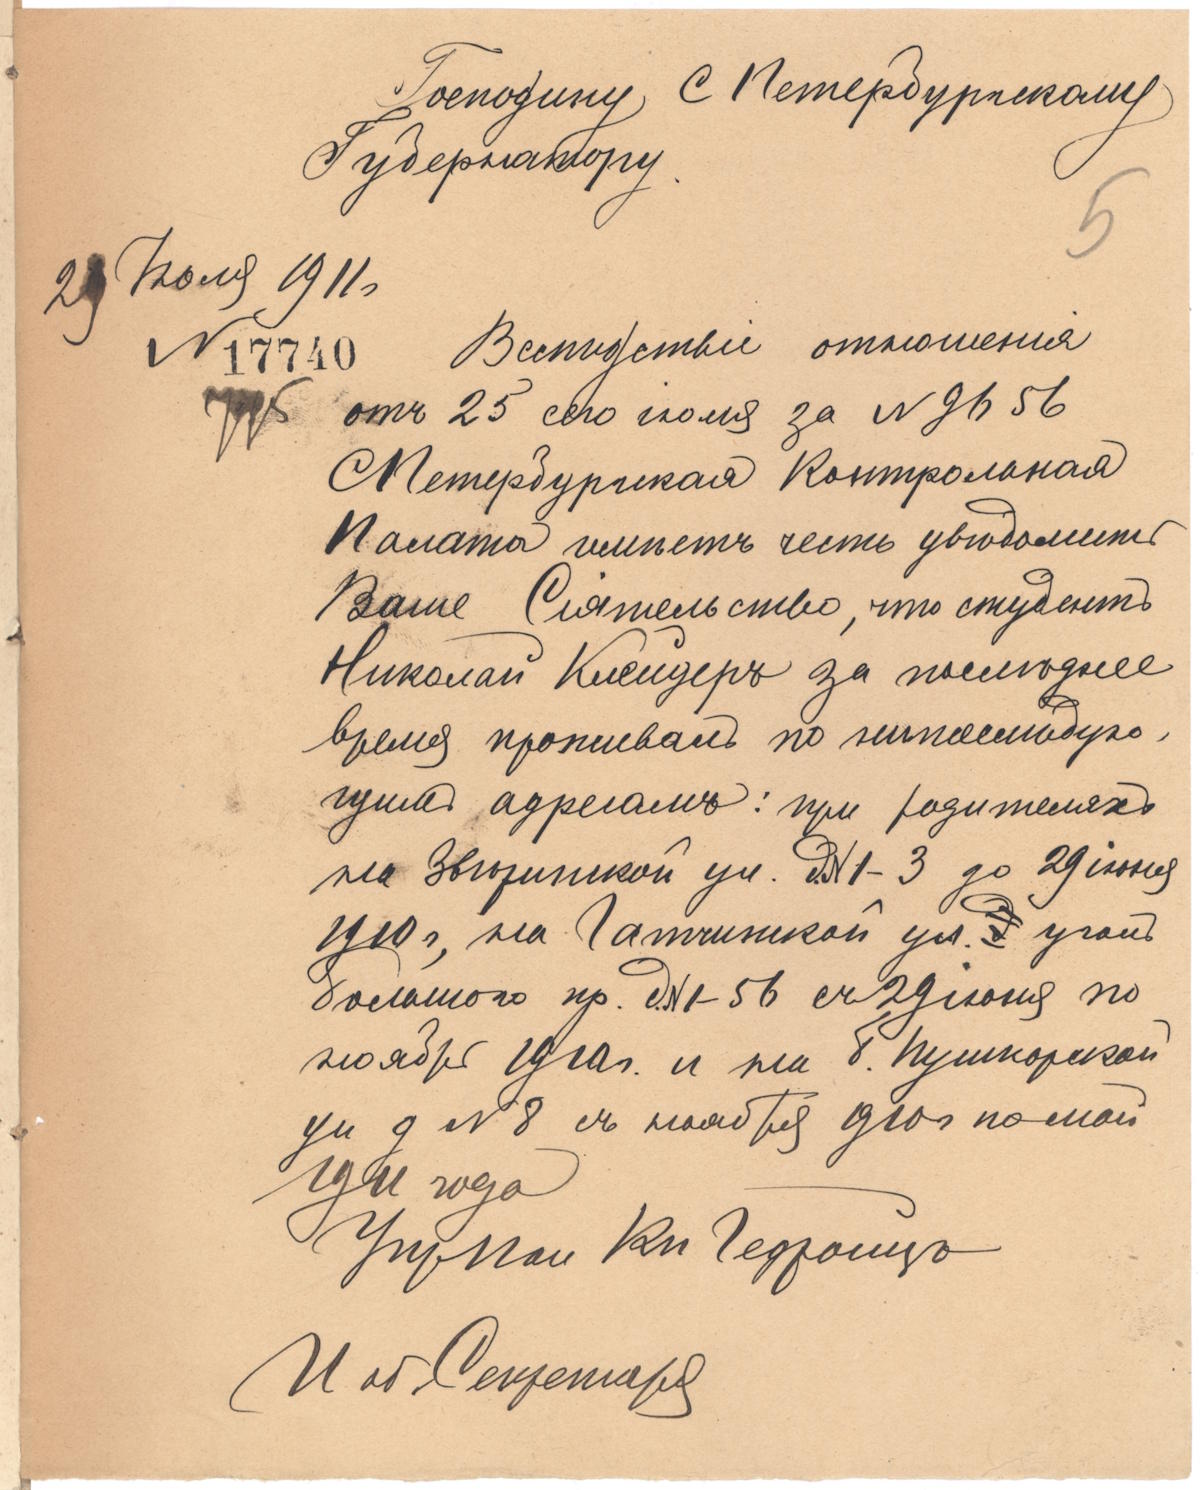 Господину С Петербургскому
Губернатору.
5
29 Іюля 1911 г
N 17740
Вслѣдствіе отношенія
отъ 25 сего іюля за N 9656
С Петербургская Контрольная
Палата имѣетъ честь увѣдомить
Ваше Сіятельство, что студентъ
Николай Клейдеръ за послѣднее
время проживалъ по нижеслѣдую-
щимъ адресамъ: при родителяхъ
на Звѣринской ул. д.N 1-3 до 29 іюня
1910 г, на Гатчинской ул. уголъ
большого пр. д.N 1-56 съ 29 іюня по
ноябрь 1910 г. и на б. Пушкарской
ул д N 8 съ ноября 1910 г по май
1911 года
Упр Пал Кн Гедройцъ
И об. Секретаря